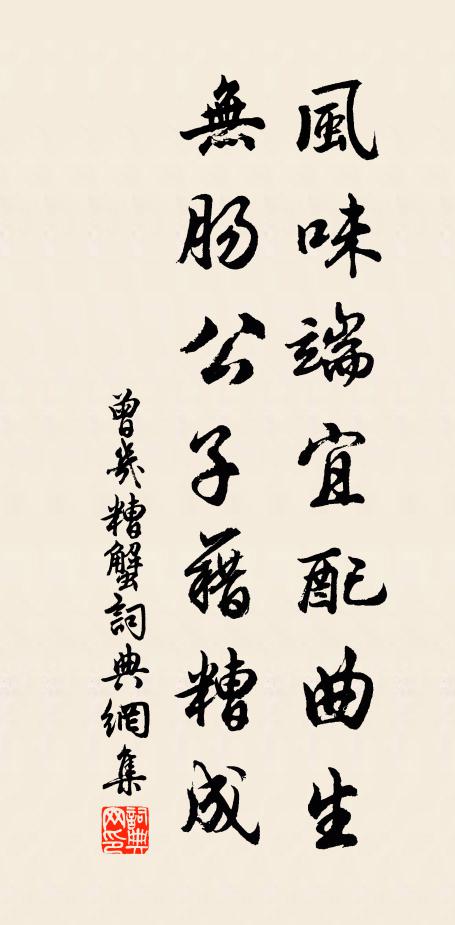 風味端宜配曲生
無腸公子藉糟成
曾幾糟蟹詞典網集
詞典網印